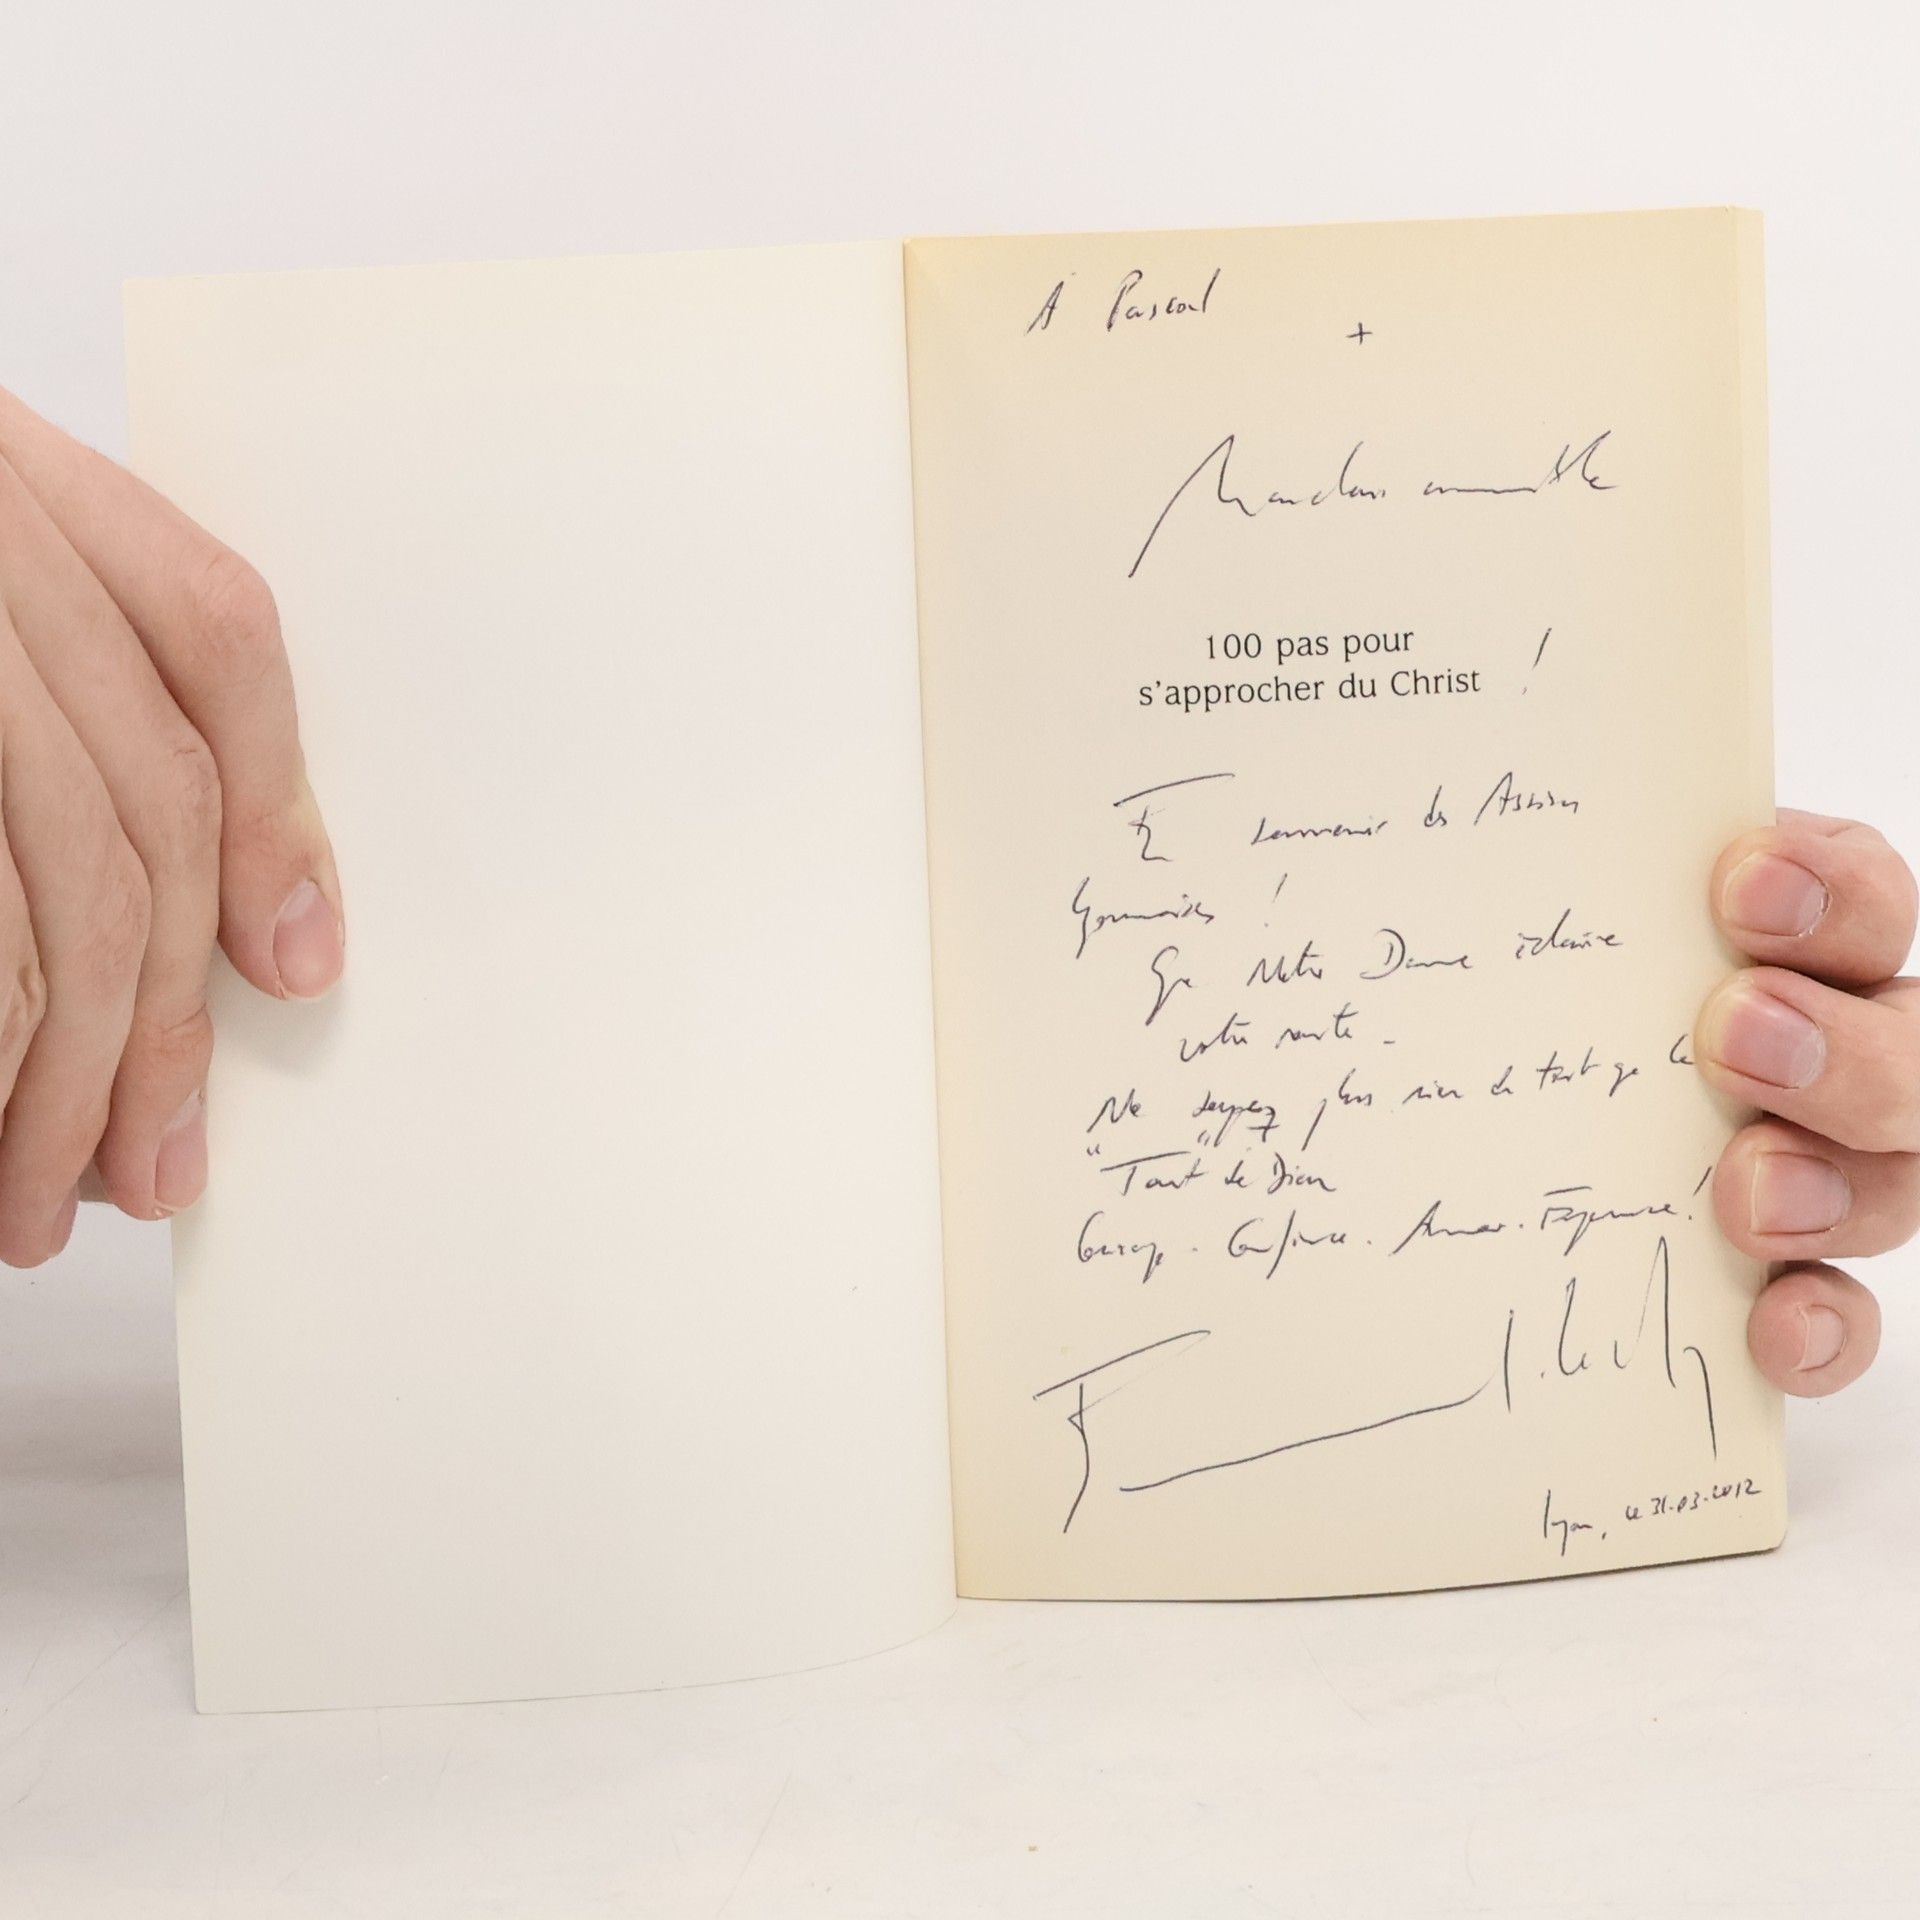 À Pascal
+
Marchons ensemble
100 pas pour
s'approcher du Christ !
En souvenir des Assises
Lyonnaises !
Que Notre Dame éclaire
votre route -
Ne soyez plus rien de tout que le
"Tout" de Dieu
Courage. Confiance. Amour. Espérance !
Lyon, le 31-03-2012